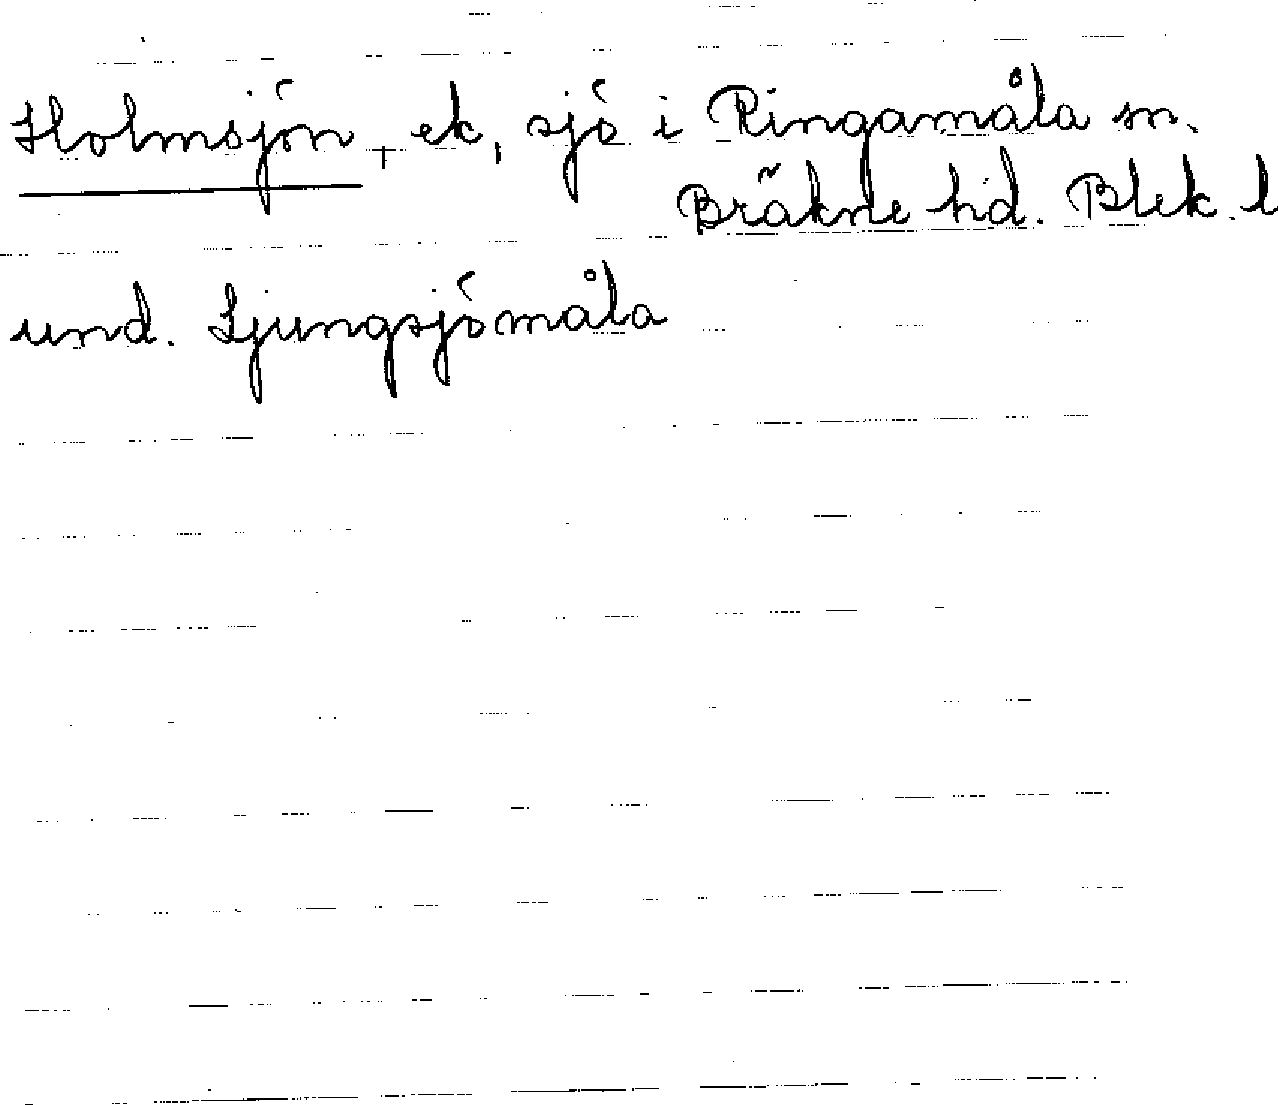 Holmsjön, ek, sjö i Ringamåla sn.
Bräkne hd. Blek. l
und. Ljungsjömåla